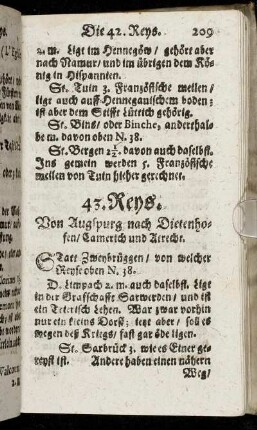 Die 42. Reys. 209
2. m. Ligt im Hennegöw / gehört aber
nach Namur / und im übrigen dem Kö-
nig in Hispannien.
St. Tuin 3. Französische meilen /
ligt auch auff Henneganischem boden;
ist aber dem Stifft Lüttich gehörig.
St. Bins / oder Binche, anderthal-
be m. davon oben N. 38.
St. Bergen 2½. davon auch daselbst.
Ins gemein werden 5. Französische
meilen von Tuin hieher gerechnet.
43. Reys.
Von Augspurg nach Dietenho-
fen / Camerich und Atrecht.
Statt Zweybrüggen / von welcher
Reyse oben N. 38.
D. Limpach 2. m. auch daselbst. Ligt
in der Graffschafft Sarwerden / und ist
ein Trierisch Lehen. War zwar vorhin
nur ein kleins Dorff; jetzt aber / soll es
wegen deß Kriegs / fast gar öde ligen.
St. Sarbrück 3. wie es Einer ge-
reyst ist. Andere haben einen nähern
Weg /